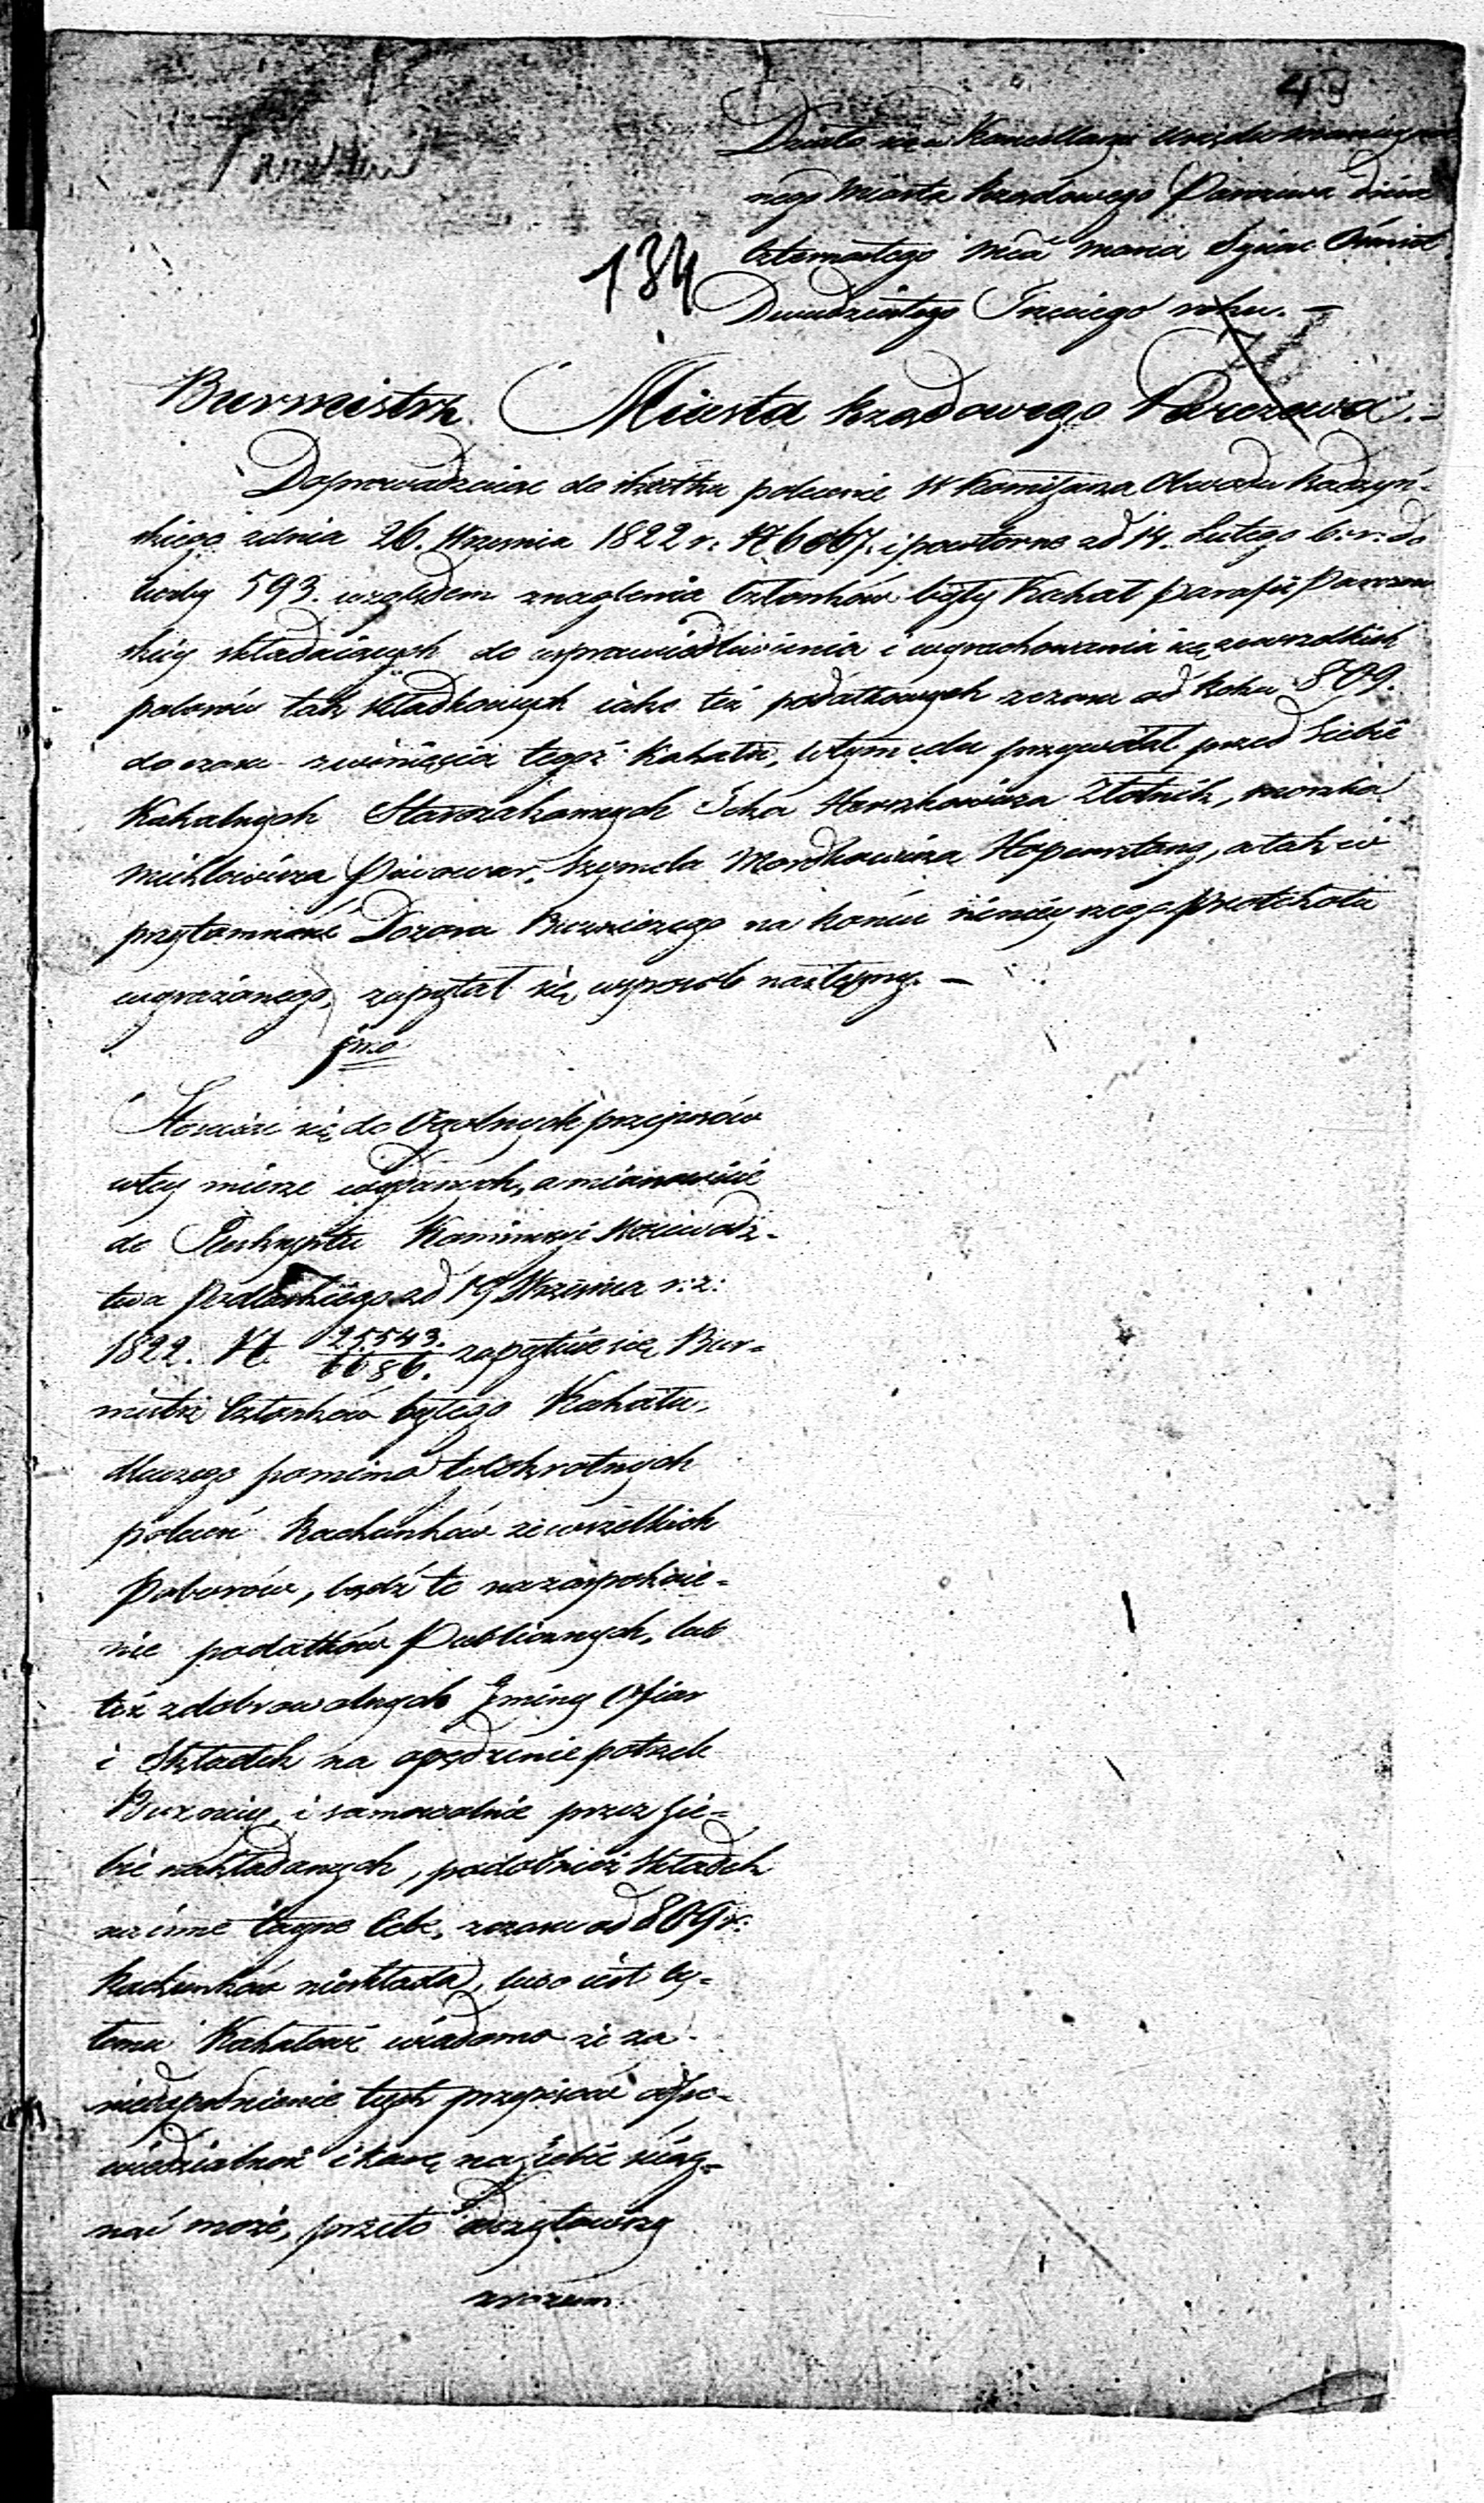 49
Działo się w Kancellaryi Urzędu Municypal
nego Miasta Rządowego Parczewa dnia
czternastego Mca Marca Tysiąc Ośmset
Dwudziestego Trzeciego roku. –
134
Burmistrz Miasta Rządowego Parczewa. –
Doprowadzaiąc do skutku polecenie W Kommissarza Obwodu Radzyń-
skiego z dnia 26. Września 1822 r. N 6067. i powtorne z d 14. Lutego b. r. do
liczby 593. względem znaglenia Członków były Kahał Parafii Parczew
skiey składaiących do usprawiedliwienia i wyrachowania się z wszelkich
poborów tak składkowych iako też podatkowych z czasu od Roku 809.
do czasu zwinięcia tegoż Kahału, w tym celu przywołał przed Siebie
Kahalnych Starozakonnych Icka Herszkowicza Złotnik,
Michlowicza Piwowar, Szymela Mordkowicza Hopensztang, a tak w
przytomności Dozoru Bużniczego na końcu ninieyszego Protokołu
wyrażonego, zapytał się w sposób następny. –
1mo
Stosuiąc się do Ogolnych przepisów
w tey mierze wydanych, a mianowicie
do Reskryptu Kommissyi Woiewodz-
twa Podlaskiego z d 19 Września r: z:
1822. N. 25543./6686. zapytuie się Bur-
mistrz Członków byłego Kahału,
dlaczego pomimo tylokrotnych
poleceń Rachunków ze wszelkich
Poborów, bądź to na zaspokoie-
nie podatków Publicznych, lub
też z dobrowolnych Gminy Ofiar
i Składek na opędzenie potrzeb
Bużnicy, i samowolnie przez Sie-
bie nakładanych, podobnież Składek
na inne tayne Cele, z czasu od 809 r:
Rachunków nieskłada, lubo iest by-
łemu Kahałowi wiadomo że za
niedopełnienie tych przepisów odpo-
wiedzialność i karę na Siebie ściąg-
nąć może, przeto odczytawszy